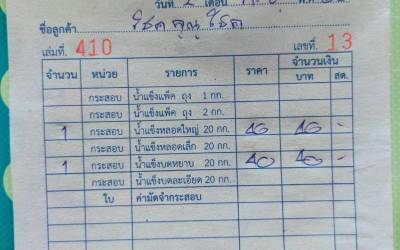 วันที่ 2 เดือน พ.ศ.
ชื่อลูกค้า โชคคูณโชค
เล่มที่ 410 เลขที่ 13
จำนวน หน่วย รายการ ราคา จำนวนเงิน
บาท สต.
กระสอบ น้ำแข็งแพ็ค ถุง 1 กก.
กระสอบ น้ำแข็งแพ็ค ถุง 2 กก.
1 กระสอบ น้ำแข็งหลอดใหญ่ 20 กก. 40 40 -
กระสอบ น้ำแข็งหลอดเล็ก 20 กก.
1 กระสอบ น้ำแข็งบดหยาบ 20 กก. 40 40 -
กระสอบ น้ำแข็งบดละเอียด 20 กก.
ใบ ค่ามัดจำกระสอบ